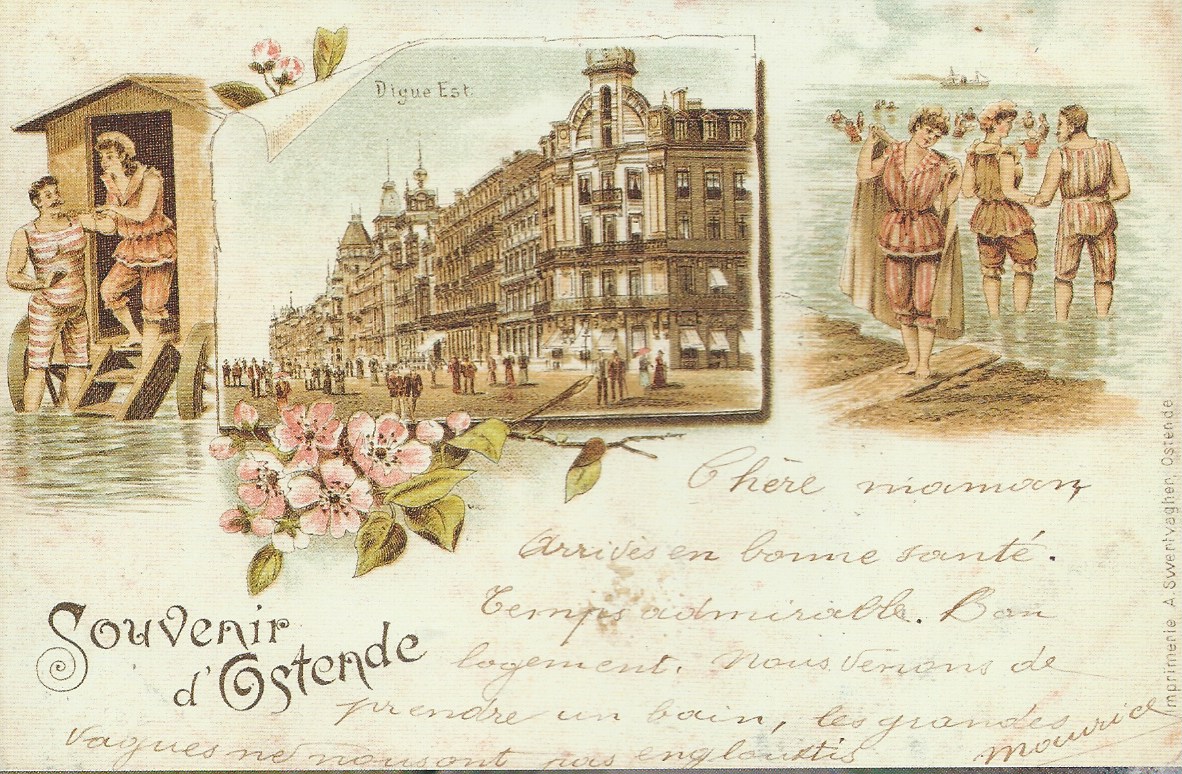 Digue Est.
Chère maman,
Arrivés en bonne santé.
Temps admirable. Bon
logement. Nous venons de
prendre un bain, les grandes
vagues ne nous ont pas engloutis
Maurice
Souvenir
d'Ostende
Imprimerie A. Swertvaghen, Ostende.